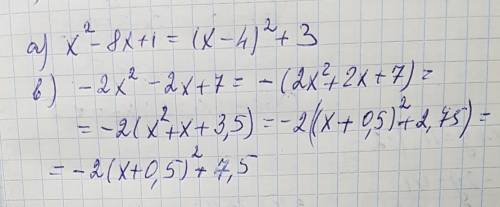 а) x² - 8x + 1 = (x - 4)² + 3
в) -2x² - 2x + 7 = -(2x² + 2x + 7) =
= -2(x² + x + 3,5) = -2((x + 0,5)² + 2,75) =
= -2(x + 0,5)² + 7,5